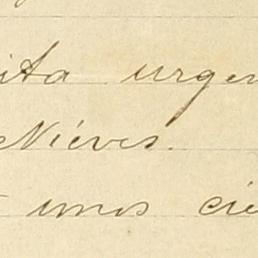 ita urgen
Nieves.
unos cie